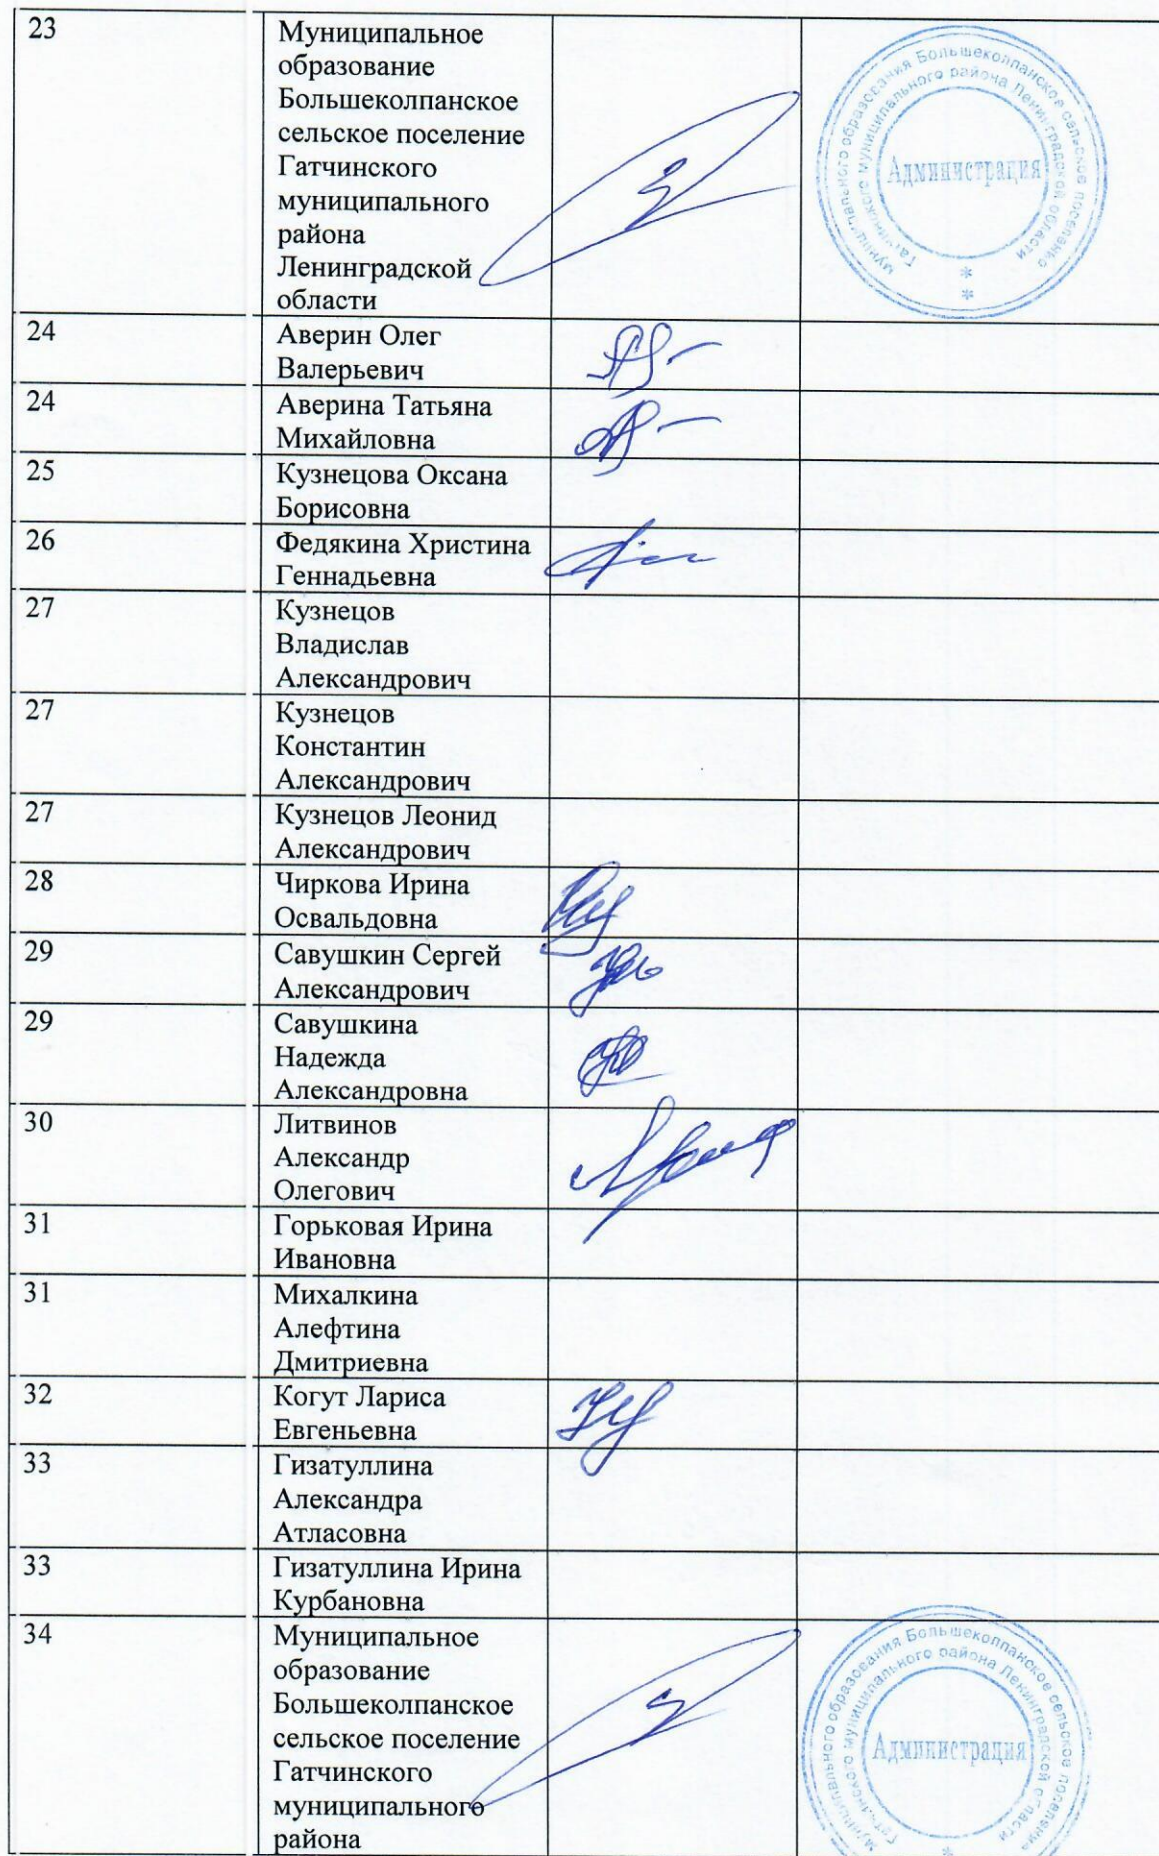 23
Муниципальное
образование
Большеколпанское
сельское поселение
Гатчинского
муниципального
района
Ленинградской
области
муниципального образования Большеколпанское сельское поселение
Гатчинского муниципального района Ленинградской области
Администрация
24
Аверин Олег
Валерьевич
24
Аверина Татьяна
Михайловна
25
Кузнецова Оксана
Борисовна
26
Федякина Христина
Геннадьевна
27
Кузнецов
Владислав
Александрович
27
Кузнецов
Константин
Александрович
27
Кузнецов Леонид
Александрович
28
Чиркова Ирина
Освальдовна
29
Савушкин Сергей
Александрович
29
Савушкина
Надежда
Александровна
30
Литвинов
Александр
Олегович
31
Горьковая Ирина
Ивановна
31
Михалкина
Алефтина
Дмитриевна
32
Когут Лариса
Евгеньевна
33
Гизатуллина
Александра
Атласовна
33
Гизатуллина Ирина
Курбановна
34
Муниципальное
образование
Большеколпанское
сельское поселение
Гатчинского
муниципального
района
муниципального образования Большеколпанское сельское поселение
Гатчинского муниципального района Ленинградской области
Администрация